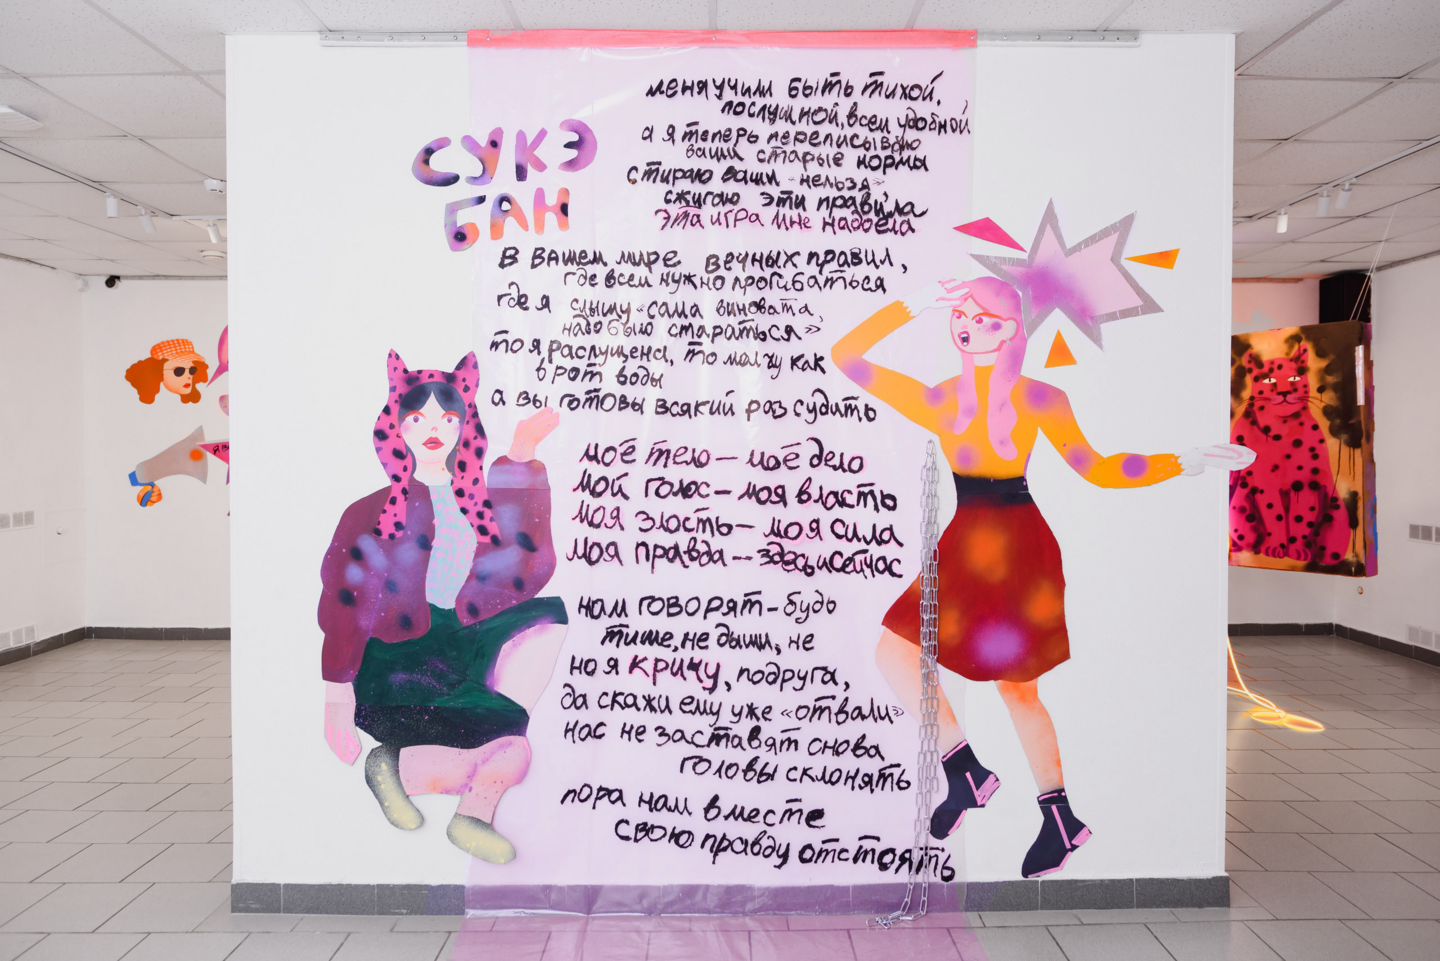 СУКЭ
БАН
меня учили быть тихой,
послушной, всем удобной,
а я теперь переписываю
ваши старые нормы
стираю ваши «нельзя»
сжигаю эти правила
эта игра мне надоела
в вашем мире вечных правил,
где всем нужно прогибаться
где я слышу «сама виновата,
надо было стараться»
то я распущена, то молчу как
в рот воды
а вы готовы всякий раз судить
моё тело — моё дело
мой голос — моя власть
моя злость — моя сила
моя правда — здесь и сейчас
нам говорят — будь
тише, не дыши, не
но я кричу, подруга,
да скажи ему уже «отвали»
нас не заставят снова
головы склонять
пора нам вместе
свою правду отстоять